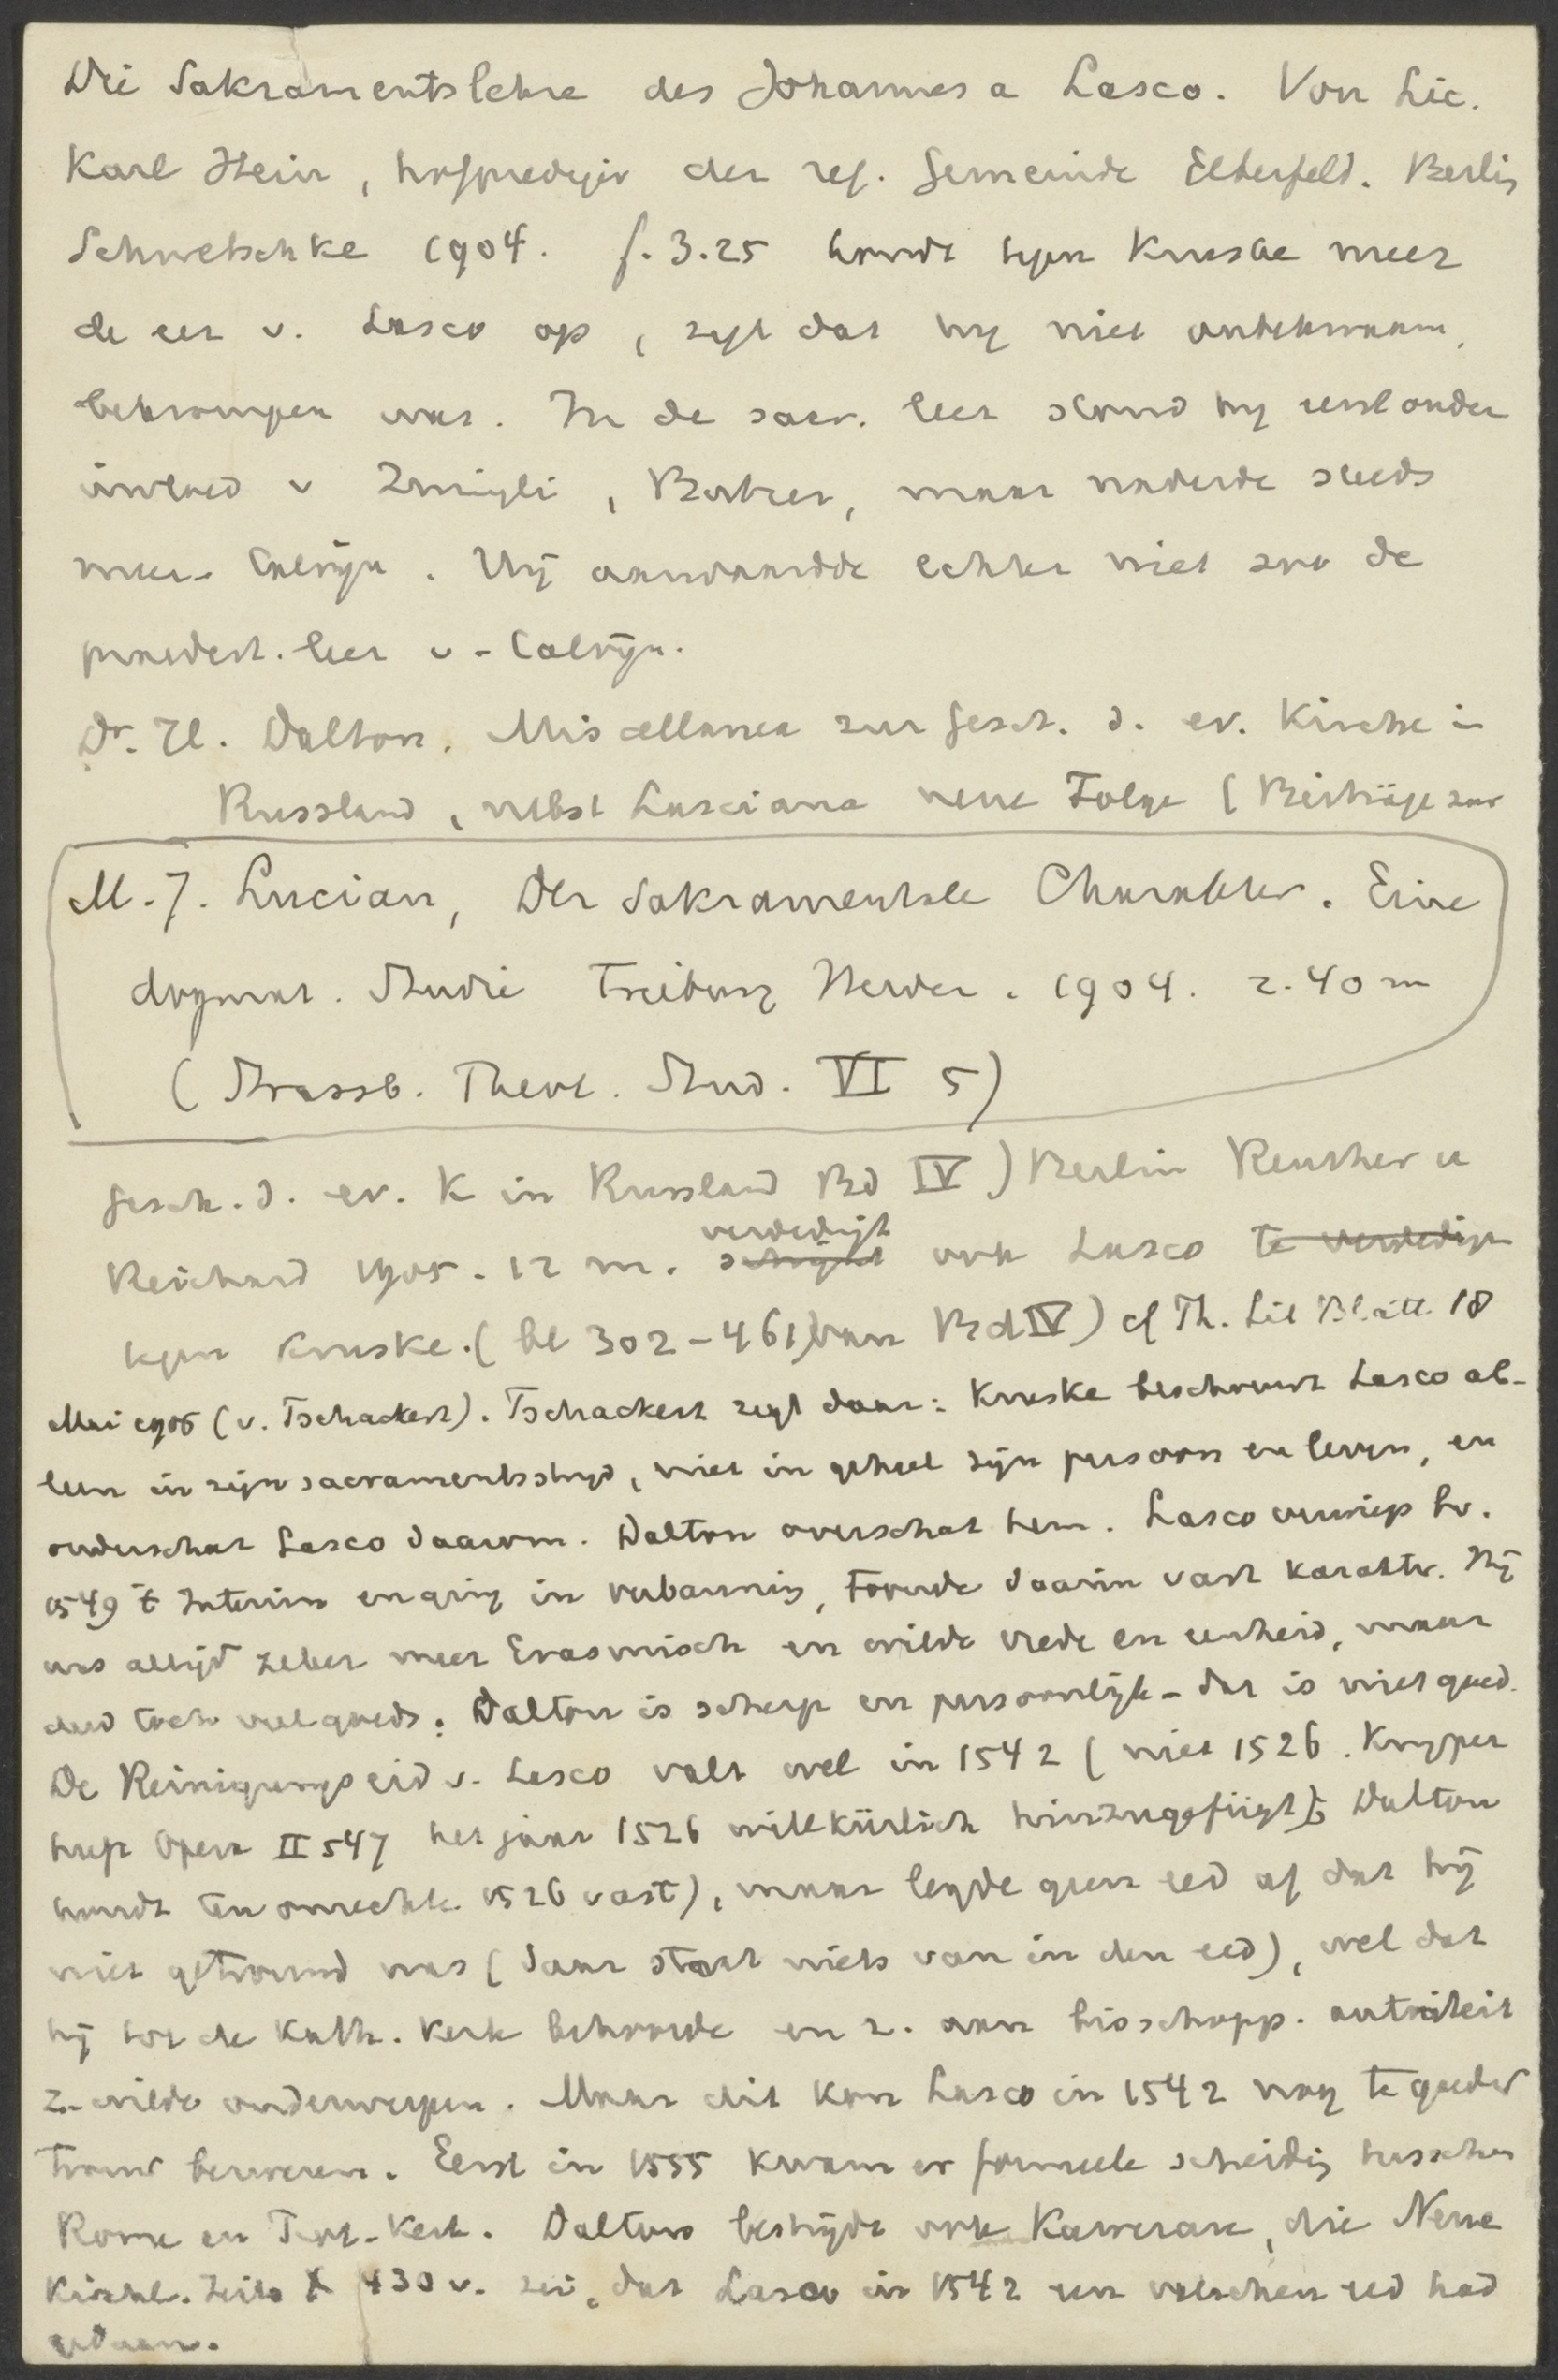 Die Sakramentslehre des Johannes a Lasco. Von Lic.
Karl Hein, hofprediger der ref. Gemeinde Elberfeld. Berlin
Schwetschke 1904. f. 3.25 houdt tegen Kruske meer
de eer v. Lasco op, zegt dat hij niet onbekwaam,
bekrompen was. In de sacr. leer stond hij eerst onder
invloed v Zwingli, Butzer, maar naderde steeds
meer Calvijn. Hij aanvaardde echter niet zoo de
praedest. leer v. Calvijn.
Dr. H. Dalton. Miscellanea zur Gesch. d. ev. Kirche in
Russland, nebst Lasciana neue Folge (Beiträge zur
M. J. Lucian, Der Sakramentale Charakter. Eine
dogmat. Studie Freiburg Herder. 1904. 2.40 m
(Strassb. Theol. Stud. VI 5)
Gesch. d. ev. K in Russland Bd IV) Berlin Reuther u
verdedigt
Reichard 1905. 12 m. ook Lasco te verdedigen
tegen Kruske. (bl 302-461) van Bd IV) cf Th. Lit Blatt. 18
Mai 1906 (v. Tschackert). Tschackert zegt daar: Kruske beschouwt Lasco al-
leen in zijn sacramentsstrijd, niet in geheel zijn persoon en leven, en
onderschat Lasco daarom. Dalton overschat hem. Lasco verwierp bv.
1549 't Interim en ging in verbanning, toonde daarin vast karakter. Hij
was altijd zeker meer Erasmisch en wilde vrede en eenheid, maar
deed toch veel goeds. Dalton is scherp en persoonlijk - dat is niet goed.
De Reinigungseid v. Lasco valt wel in 1542 (niet 1526. Kuyper
heeft Opera II 547 het jaar 1526 willkürlich hinzugefügt); Dalton
houdt ten onrechte 1526 vast), maar legde geen eed af dat hij
niet getrouwd was (daar staat niets van in den eed), wel dat
hij tot de Kath. Kerk behoorde en z. aan bisschopp. autoriteit
z. wilde onderwerpen. Maar dit kon Lasco in 1542 nog te goeder
trouw beweren. Eerst in 1555 kwam er formeele scheiding tusschen
Rome en Prot. Kerk. Dalton bestrijdt ook Kawerau, die Neue
Kirchl. Zeits X 430 v. zei, dat Lasco in 1542 een valschen eed had
gedaan.